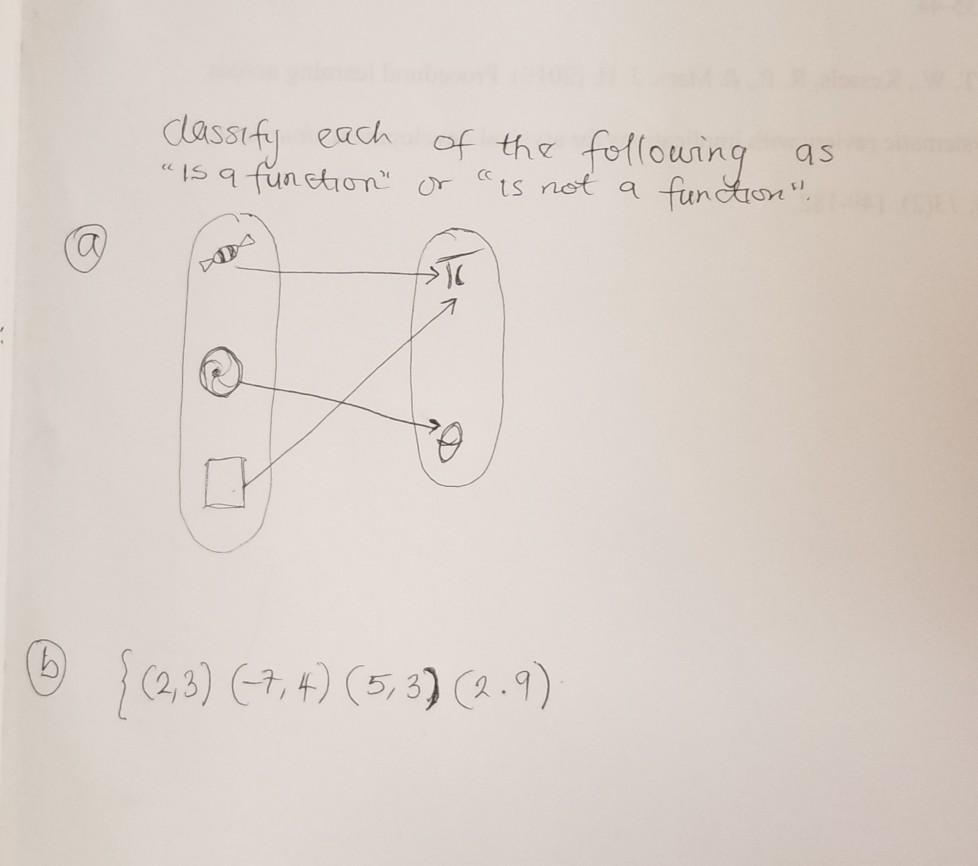 classify each of the following as
"is a function" or "is not a function".
a
π
θ
b {(2,3) (-7,4) (5,3) (2.9)